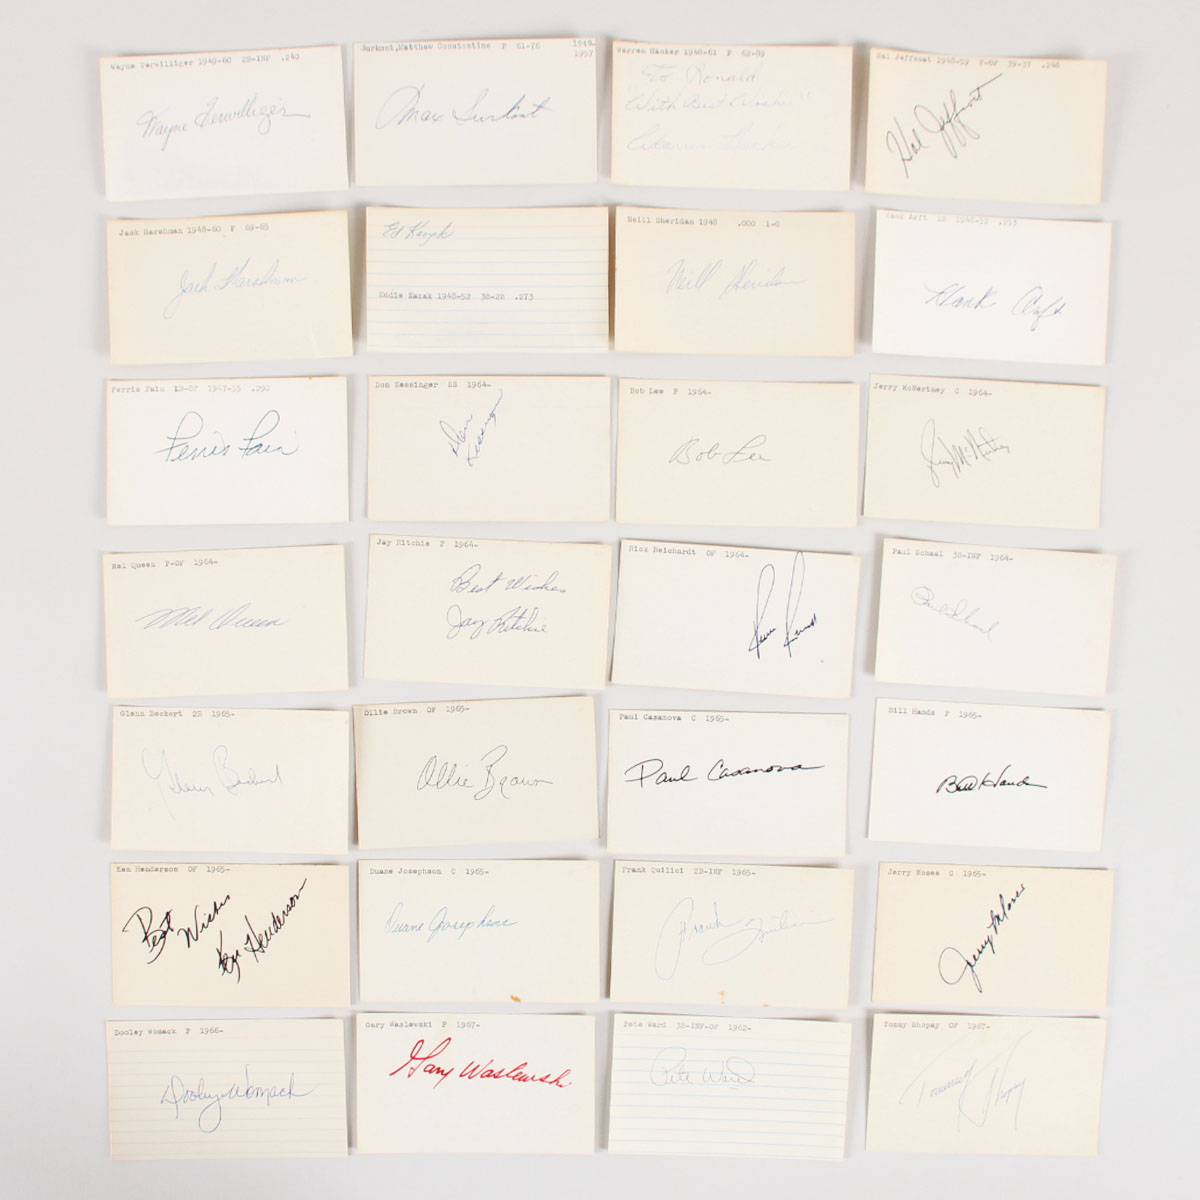 Wayne Terwilliger 1949-60 2B-INF .240
Wayne Terwilliger
Surkont,Matthew Constantine P 61-76 1949-
1957
Max Surkont
Warren Hacker 1948-61 P 62-89
"To Ronald
With Best Wishes"
Warren Hacker
Hal Jeffcoat 1948-59 P-OF 39-37 .248
Hal Jeffcoat
Jack Harshman 1948-60 P 69-65
Jack Harshman
Ed Kazak
Eddie Kazak 1948-52 3B-2B .273
Neill Sheridan 1948 .000 1-0
Neill Sheridan
Hank Arft 1B 1948-52 .253
Hank Arft
Ferris Fain 1B-OF 1947-55 .290
Ferris Fain
Don Kessinger SS 1964-
Don Kessinger
Bob Lee P 1964-
Bob Lee
Jerry McNertney C 1964-
Jerry McNertney
Mel Queen P-OF 1964-
Mel Queen
Jay Ritchie P 1964-
Best Wishes
Jay Ritchie
Rick Reichardt OF 1964-
Paul Schaal 3B-INF 1964-
Paul Schaal
Glenn Beckert 2B 1965-
Glenn Beckert
Ollie Brown OF 1965-
Ollie Brown
Paul Casanova C 1965-
Paul Casanova
Bill Hands P 1965-
Bill Hands
Ken Henderson OF 1965-
Best Wishes
Ken Henderson
Duane Josephson C 1965-
Duane Josephson
Frank Quilici 2B-INF 1965-
Frank Quilici
Jerry Moses C 1965-
Jerry Moses
Dooley Womack P 1966-
Dooley Womack
Gary Waslewski P 1967-
Gary Waslewski
Pete Ward 3B-INF-OF 1962-
Pete Ward
Tommy Shopay OF 1967-
Shopay